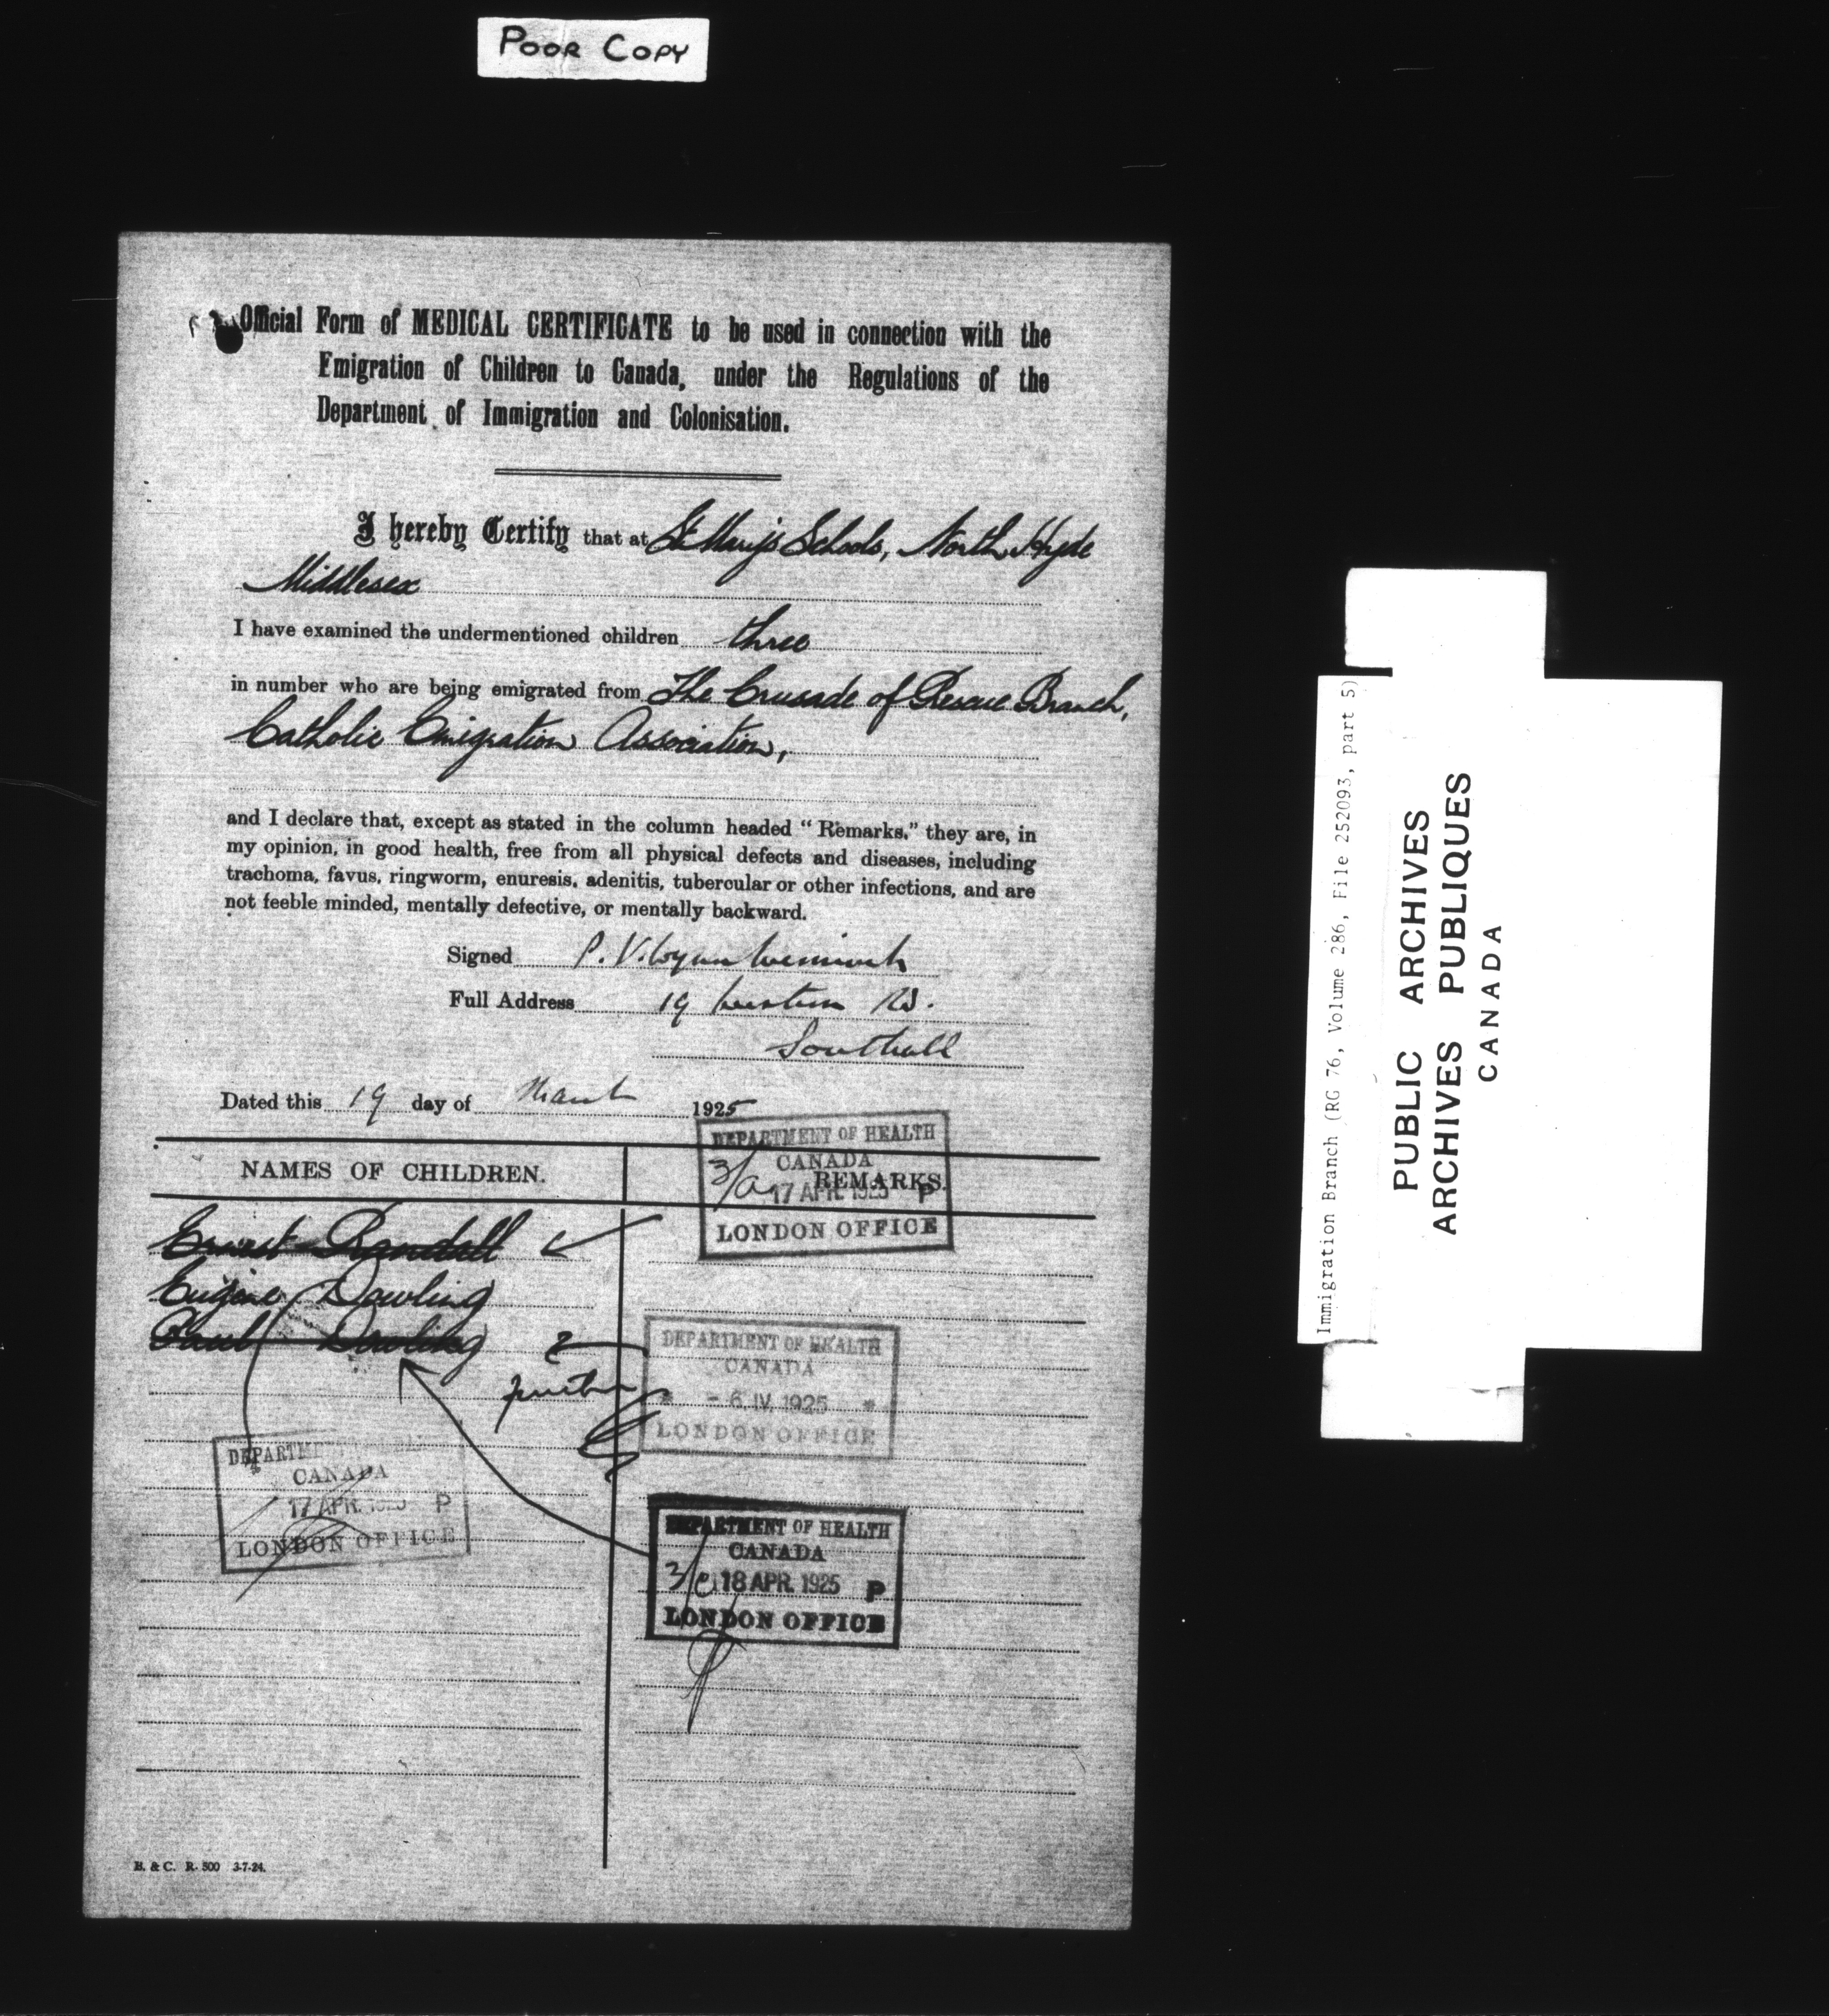 POOR COPY
Official Form of MEDICAL CERTIFICATE to be used in connection with the
Emigration of Children to Canada, under the Regulations of the
Department of Immigration and Colonisation.
I hereby Certify that at St. Mary's Schools, North Hyde
Middlesex
I have examined the undermentioned children three
in number who are being emigrated from The Crusade of Rescue Branch,
Catholic Emigration Association,
and I declare that, except as stated in the column headed "Remarks," they are, in
my opinion, in good health, free from all physical defects and diseases, including
trachoma, favus, ringworm, enuresis, adenitis, tubercular or other infections, and are
not feeble minded, mentally defective, or mentally backward.
Signed P. V.
Full Address 19
Southall
Dated this 19 day of March 1925
NAMES OF CHILDREN.
REMARKS.
DEPARTMENT OF HEALTH
CANADA
17 APR. 1925 P
LONDON OFFICE
Ernest Randall
Eugene Dowling
Paul Dowling
DEPARTMENT OF HEALTH
CANADA
* - 6. IV. 1925 *
LONDON OFFICE
DEPARTME
CANADA
17 APR. P
LONDON OFFICE
DEPARTMENT OF HEALTH
CANADA
18 APR. 1925 P
LONDON OFFICE
B. & C. R. 500 3-7-24.
Immigration Branch (RG 76, Volume 286, File 252093, part 5)
PUBLIC ARCHIVES
ARCHIVES PUBLIQUES
CANADA